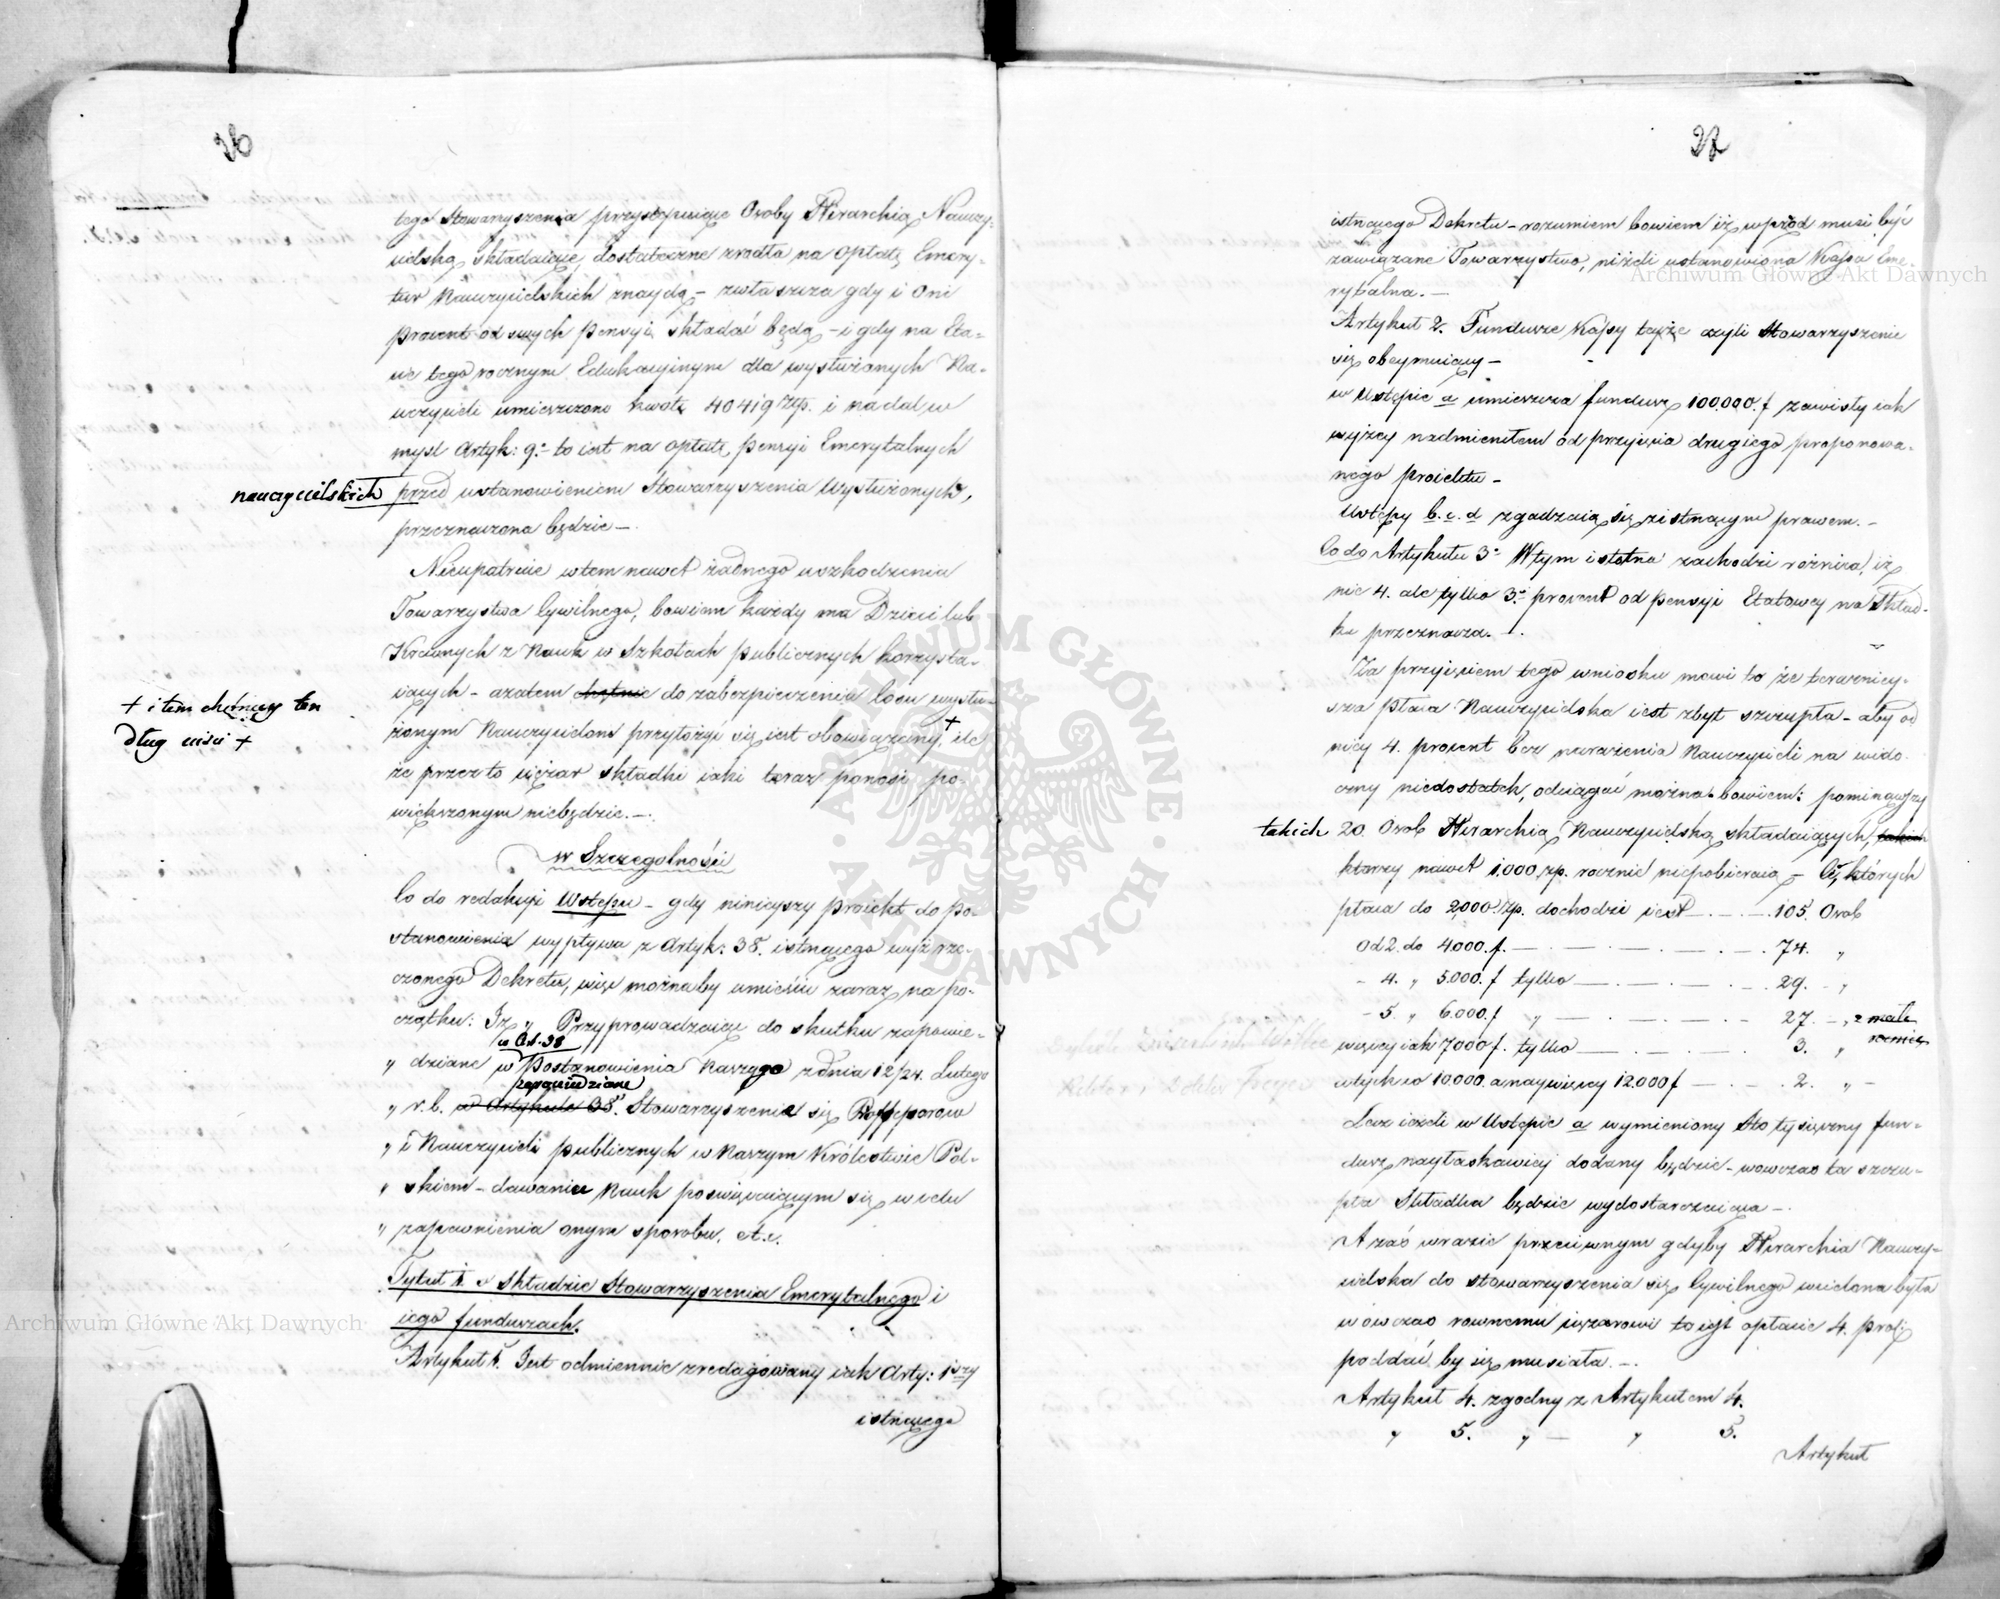 26
tego Stowarzyszenia przystępuiące Osoby Hierarchią Nauczy-
cielską składaiące, dostateczne zrodła na opłatę Emery-
tur Nauczycielskich znaydą – zwłaszcza gdy i oni
procent od swych pensyi składać będą – i gdy na Eta-
cie tegorocznym Edukacyinym dla wysłużonych Na-
uczycieli umieszczono kwotę 40419 Złp. i nadal w
mysl Artyk: 9.° to iest na opłatę pensyi Emerytalnych
nauczycielskich przed ustanowieniem Stowarzyszenia wysłużonych,
przeznaczona będzie –.
Nieupatruie w tem nawet żadnego uszkodzenia
Towarzystwa Cywilnego, bowiem każdy ma Dzieci lub
Krewnych z Nauk w Szkołach publicznych korzysta-
iących – azatem chętnie do zabezpieczenia losu wysłu-
+ i tem chętniey ten
dług uiści +
żonym Nauczycielom przyłożyć się iest obowiązany,+ ile
że przez to ciężar składki iaki teraz ponosi po-
większonym niebędzie. –.
w Szczególności
Co do redakcyi Wstępu – gdy ninieyszy proiekt do po-
stanowienia wypływa z Artyk: 38. istnącego wyż rze-
czonego Dekretu, więc możnaby umieścić zaraz na po-
czątku: Iż „ Przyprowadzaiąc do skutku zapowie-
w Art. 38
„ dziane w Postanowienia Naszego z dnia 12/24. Lutego
zapowiedziane
„ r. b. w Artykule 38. Stowarzyszenie się Proffessorów
„ i Nauczycieli publicznych w Naszym Królestwie Pol-
„ skiem – dawaniu Nauk poswięcaiącym się w celu
„ zapewnienia onym sposobu, et.c.
Tytuł I. o Składzie Stowarzyszenia Emerytalnego i
iego funduszach.
Artykuł 1. Jest odmiennie zredagowany iak Arty: 1szy
istnącego
27
istnącego Dekretu – rozumiem bowiem iż wprzód musi być
zawiązane Towarzystwo, niżeli ustanowiona Kassa Eme-
rytalna. –
Artykuł 2. Fundusze Kassy teyże czyli Stowarzyszenie
się obeymuiący –
w Ustępie a umieszcza fundusz 100.000. f zawisły iak
wyżey nadmieniłem od przyięcia drugiego proponowa-
nego proiektu –
Ustępy b. c. d zgadzaią się z istnącym prawem. –
Co do Artykułu 3° W tym istotna zachodzi różnica, iż
nie 4. ale tylko 3.ci procent od pensyi Etatowey na Skład-
kę przeznacza. –.
Za przyięciem tego wniosku mowi to że terazniey-
sza płaca Nauczycielska iest zbyt szczupła – aby od
niey 4. procent bez narażenia Nauczycieli na wido-
czny niedostatek, odciągać można – bowiem: pominąwszy
takich 20. Osob Hierarchią Nauczycielską składaiących, takich
ktorzy nawet 1.000 zp. rocznie niepobieraią – Ci, których
płaca do 2,000. Złp. dochodzi iest – . – . – 105. Osob
Od 2. do 4.000. f. – . – . – . – . – 74. „
– 4. „ 5.000. f tylko – . – . – . – 29. – „
– 5. „ 6.000. f „ – . – . – . – 27. – „
więcey iak 7000 f. tylko – . – . – 3. „
10.000. a naywięcey 12.000 f – . – . 2. „ –
Lecz ieżeli w Ustępie a wymieniony Stotysięczny fun-
dusz nayłaskawiey dodany będzie – wowczas ta szczu-
pła Składka będzie wydostarczaiąca –.
A zaś w razie przeciwnym gdyby Hierarchia Nauczy-
cielska do stowarzyszenia się Cywilnego wcielona była
wówczas rownemu ciężarowi to iest opłacie 4. proc:
poddać by się musiała. –.
Artykuł 4. zgodny z Artykułem 4.
„ 5. „ – „ 5.
Artykuł
Archiwum Główne Akt Dawnych
Archiwum Główne Akt Dawnych
ARCHIWUM GŁÓWNE · AKT DAWNYCH ·